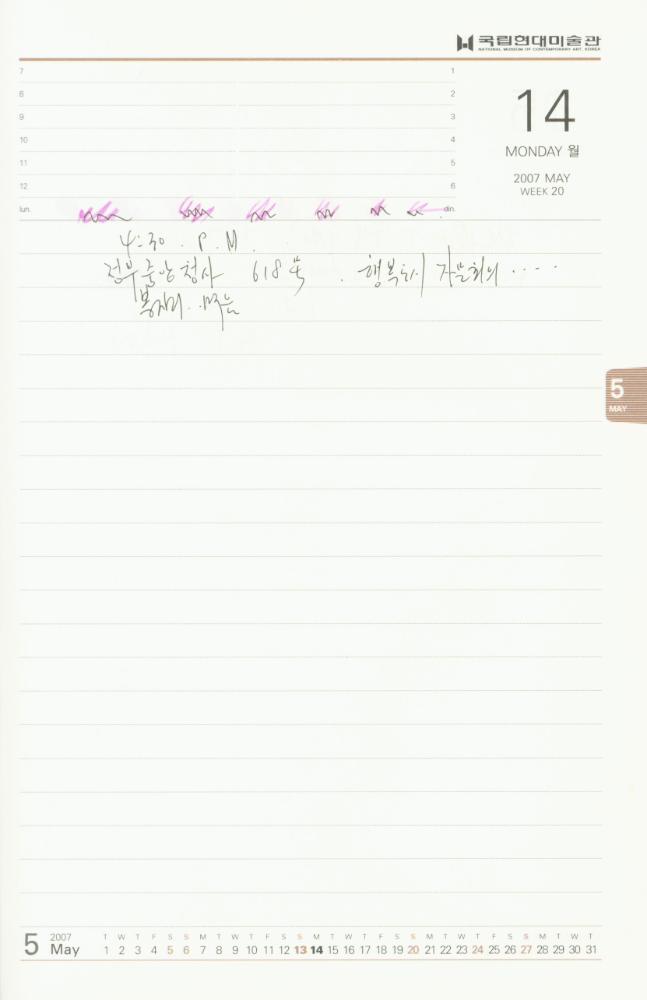 국립현대미술관
NATIONAL MUSEUM OF CONTEMPORARY ART, KOREA
7 1
8 2
9 3
10 4
11 5
12 6
lun. din.
14
MONDAY 월
2007 MAY
WEEK 20
4:30 . P. M.
정부중앙청사 618호 . 행복도시 자문회의 ....
5
MAY
5 2007 May
T W T F S S M T W T F S S M T W T F S S M T W T F S S M T W T
1 2 3 4 5 6 7 8 9 10 11 12 13 14 15 16 17 18 19 20 21 22 23 24 25 26 27 28 29 30 31